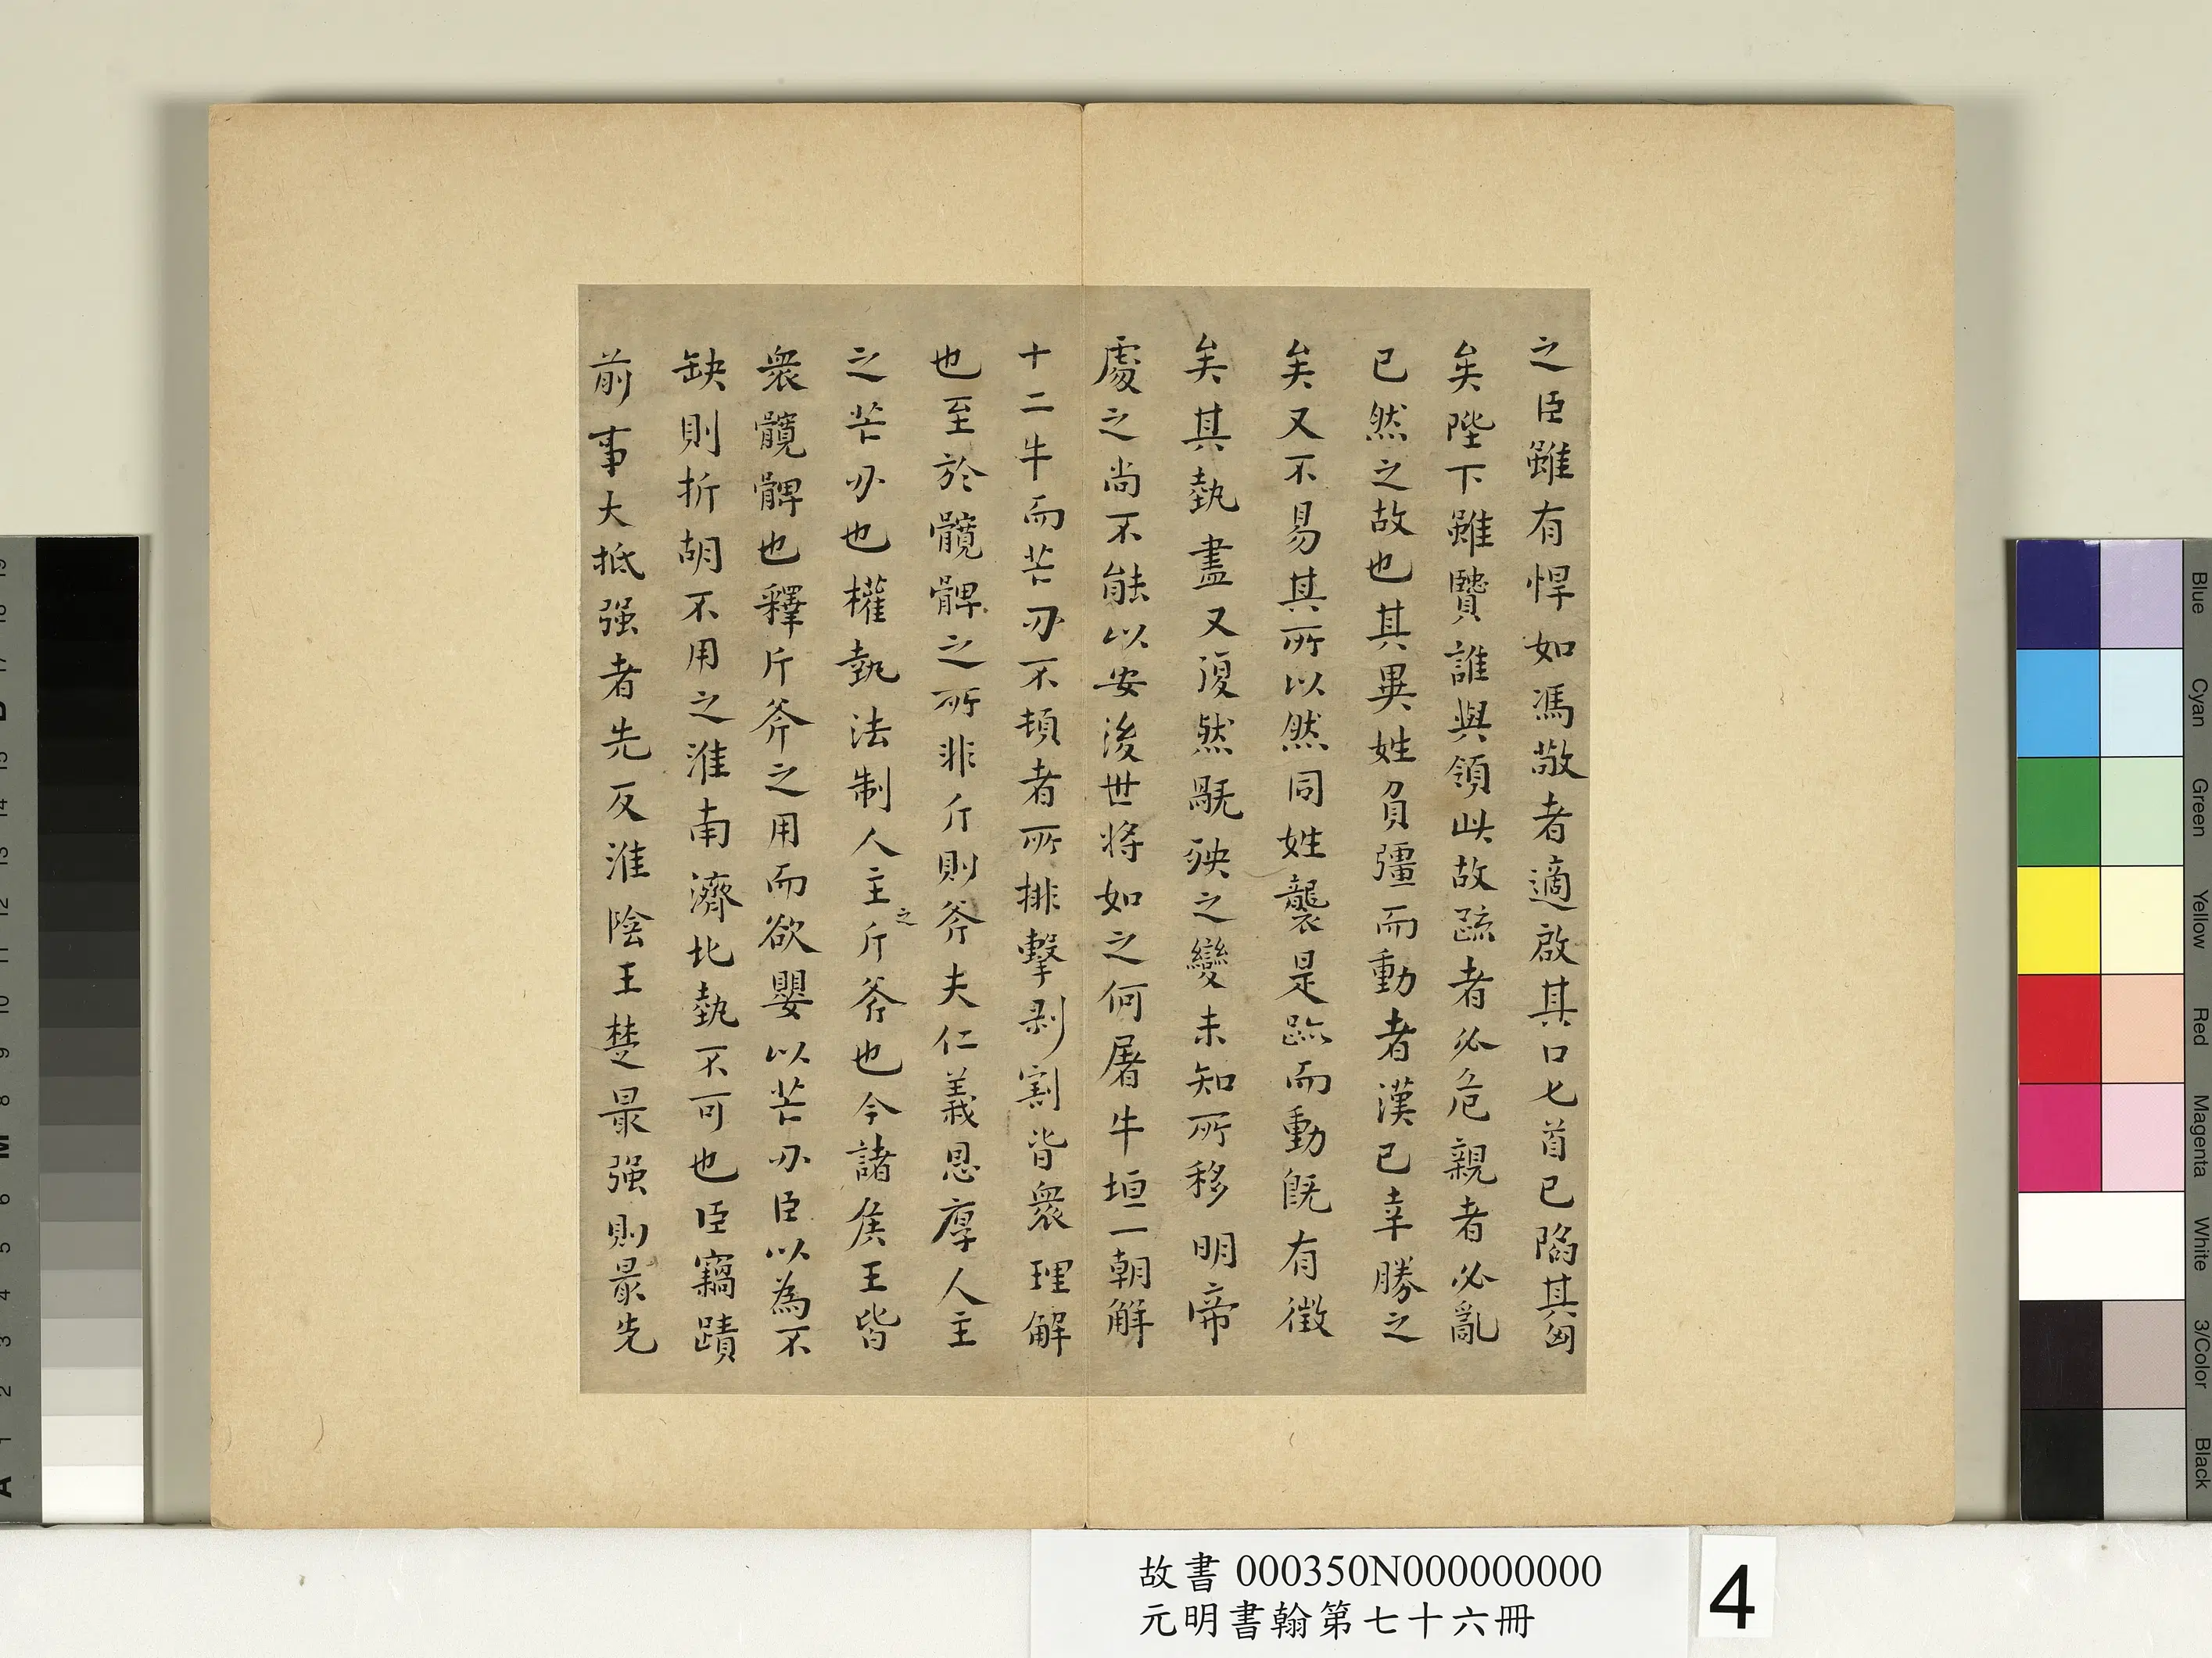 之臣雖有悍如馮敬者適啟其口匕首已陷其匈
矣陛下雖賢誰與領此故疏者必危親者必亂
已然之故也其異姓負彊而動者漢已幸勝之
矣又不易其所以然同姓襲是跡而動既有徵
矣其埶盡又復然旤殃之變未知所移明帝
處之尚不能以安後世將如之何屠牛垣一朝解
十二牛而芒刃不頓者所排擊剥割皆衆理解
也至於髖髀之所非斤則斧夫仁義恩厚人主
之芒刃也權埶法制人主之斤斧也今諸侯王皆
衆髖髀也釋斤斧之用而欲嬰以芒刃臣以為不
缺則折胡不用之淮南濟北埶不可也臣竊蹟
前事大抵强者先反淮陰王楚最强則最先
故書 000350N000000000
元明書翰第七十六冊
4
Blue
Cyan
Green
Yellow
Red
Magenta
White
3/Color
Black